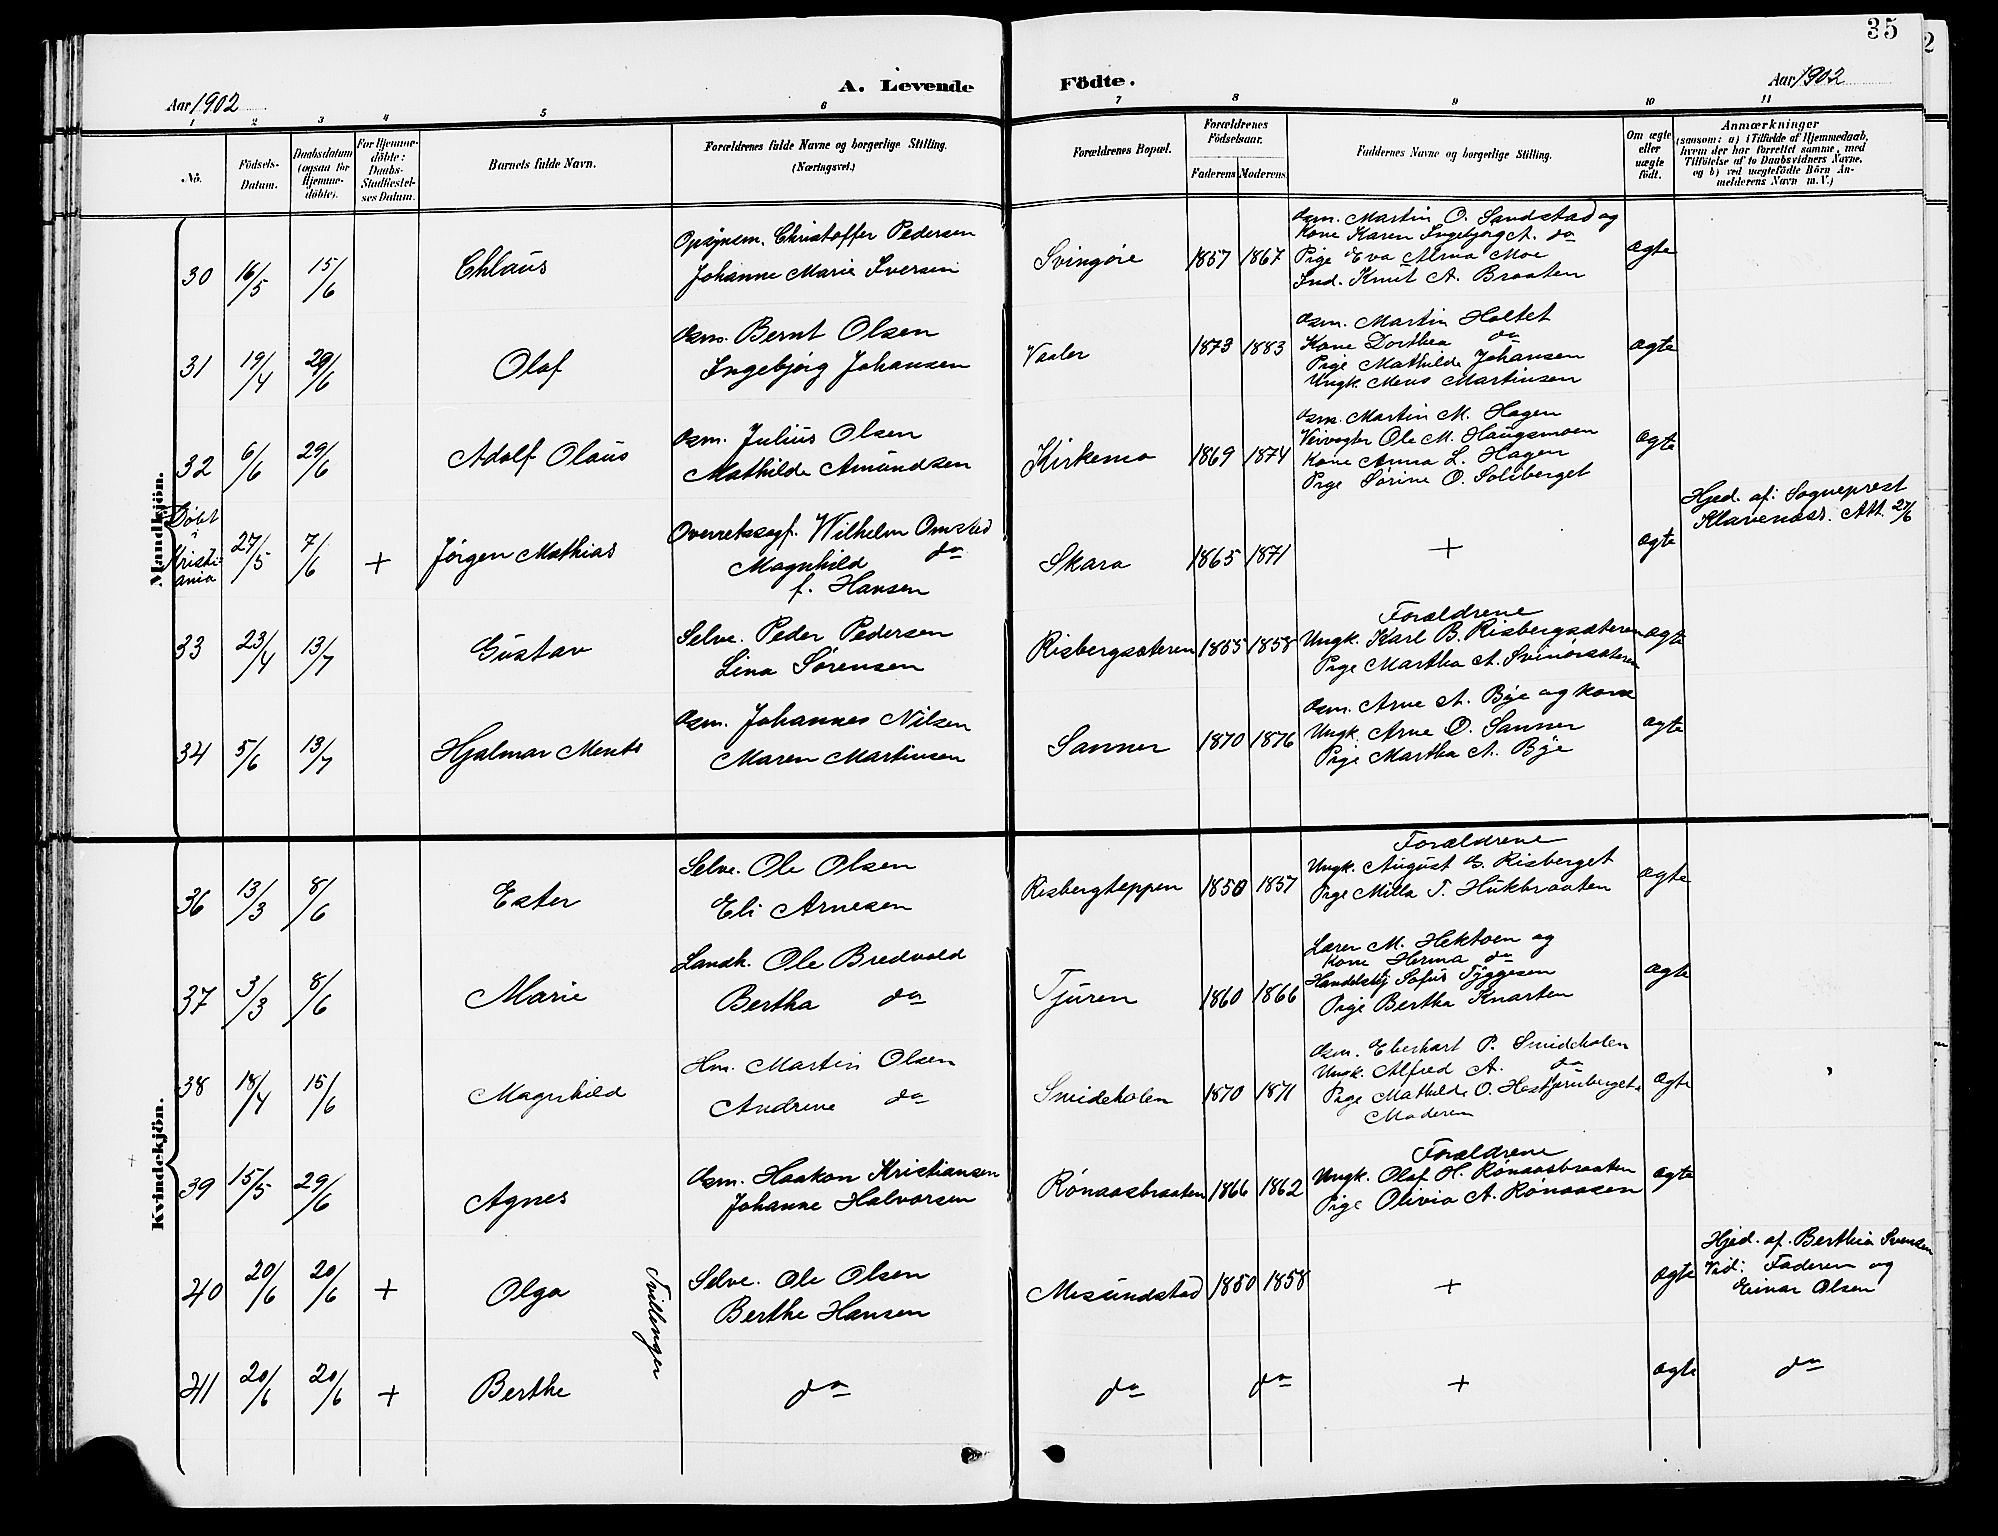 35
2
Aar 1902
A. Levende
Födte.
Aar 1902
1 2 3 4 5 6 7 8 9 10 11
No.
Födsels-
Datum.
Daabsdatum
(ogsaa for
Hjemme-
döbte).
For Hjemme-
döbte:
Daabs-
Stadfæstel-
ses Datum.
Barnets fulde Navn.
Forældrenes fulde Navne og borgerlige Stilling.
(Næringsvei.)
Forældrenes Bopæl.
Forældrenes
Födselsaar.
Faderens Moderens
Faddernes Navne og borgerlige Stilling.
Om ægte
eller
uægte
födt.
Anmærkninger
(saasom: a) i Tilfælde af Hjemmedaab,
hvem der har forrettet samme, med
Tilföielse af to Daabsvidners Navne,
og b) ved uægtefödte Börn An-
melderens Navn m. V.)
Mandkjön.
30 16/5 15/6 Chlaus
Opsynsm. Christoffer Pedersen
Johanne Marie Iversen
Svingöie 1857 1867
Gsm. Martin O. Sandstad og
Kone Karen Ingebjørg A. do
Pige Eva Alma Moe
Ind. Knut A. Braaten
ægte
31 19/4 29/6 Olaf
Gsm. Bernt Olsen
Ingebjørg Johansen
Vaaler 1873 1883
Gsm. Martin Holtet
Kone Dorthea do
Pige Mathilde Johansen
Ungk. Mens Martinsen
ægte
32 6/6 29/6 Adolf Olaus
Gsm. Julius Olsen
Mathilde Amundsen
Kirkemo 1869 1874
Gsm. Martin M. Hagen
Veivogter Ole M. Haugsmoen
Kone Anna L. Hagen
Pige Sørine O. Soliberget
ægte
Døbt
i
Kristi-
ania
27/5 7/6 + Jørgen Mathias
Overretssagf. Wilhelm Omsted
Magnhild do
f. Hansen
Skara 1865 1871
+
ægte
Hjed. af: Sogneprest
Klaveness. Att. 27/6
33 23/4 13/7 Gustav
Selve. Peder Pedersen
Lina Sørensen
Risbergsæteren 1855 1858
Forældrene
Ungk. Karl B. Risbergsæteren
Pige Martha A. Svinørsæteren
ægte
34 5/6 13/7 Hjalmar Mentz
Gsm. Johannes Nilsen
Maren Martinsen
Sanner 1870 1876
Gsm. Arne A. Bye og kone
Ungk. Arne O. Sanner
Pige Martha A. Bye
ægte
Kvindekjön.
36 13/3 8/6 Ester
Selve. Ole Olsen
Eli Arnesen
Risbergteppen 1850 1857
Forældrene
Ungk. August E. Risberget
Pige Milla T. Hukbraaten
ægte
37 3/3 8/6 Marie
Landh. Ole Bredvold
Bertha do
Tjuren 1860 1866
Lærer M. Hektoen og
kone Herma do
Handelsbj Sofus Tyggesen
Pige Bertha Knarten
ægte
38 18/4 15/6 Magnhild
Hm. Martin Olsen
Andrine do
Smideholen 1870 1871
Gsm. Eberhart P. Smideholen
Ungk. Alfred A. do
Pige Mathilde O. Hestjernberget
Moderen
ægte
39 15/5 29/6 Agnes
Gsm. Haakon Kristiansen
Johanne Halvorsen
Rønaasbraaten 1866 1862
Forældrene
Ungk. Olaf H. Rønaasbraaten
Pige Olivia A. Rønaasen
ægte
40 20/6 20/6 + Olga
Tvillinger
Selve. Ole Olsen
Berthe Hansen
Mesundstad 1850 1858
+
ægte
Hjed. af. Berthea Svensen
Vid: Faderen og
Einar Olsen
41 20/6 20/6 + Berthe
do do do + ægte do